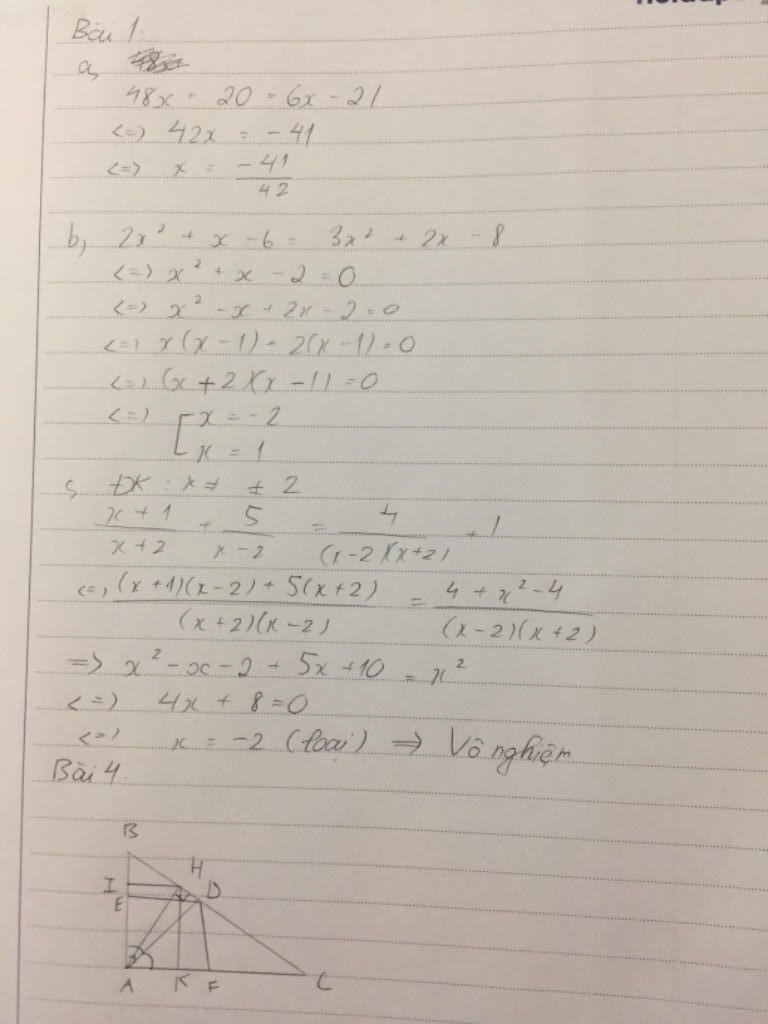 Bài 1
a,
48x + 20 = 6x - 21
<=> 42x = -41
<=> x = -41/42
b, 2x² + x - 6 = 3x² + 2x - 8
<=> x² + x - 2 = 0
<=> x² - x + 2x - 2 = 0
<=> x(x - 1) + 2(x - 1) = 0
<=> (x + 2)(x - 1) = 0
<=> [ x = -2
x = 1
c, ĐK : x ≠ ± 2
(x + 1)/(x + 2) + 5/(x - 2) = 4/((x - 2)(x + 2)) + 1
<=> ((x + 1)(x - 2) + 5(x + 2))/((x + 2)(x - 2)) = (4 + x² - 4)/((x - 2)(x + 2))
=> x² - x - 2 + 5x + 10 = x²
<=> 4x + 8 = 0
<=> x = -2 (loại) => Vô nghiệm
Bài 4
B
H
I
D
E
A K F C